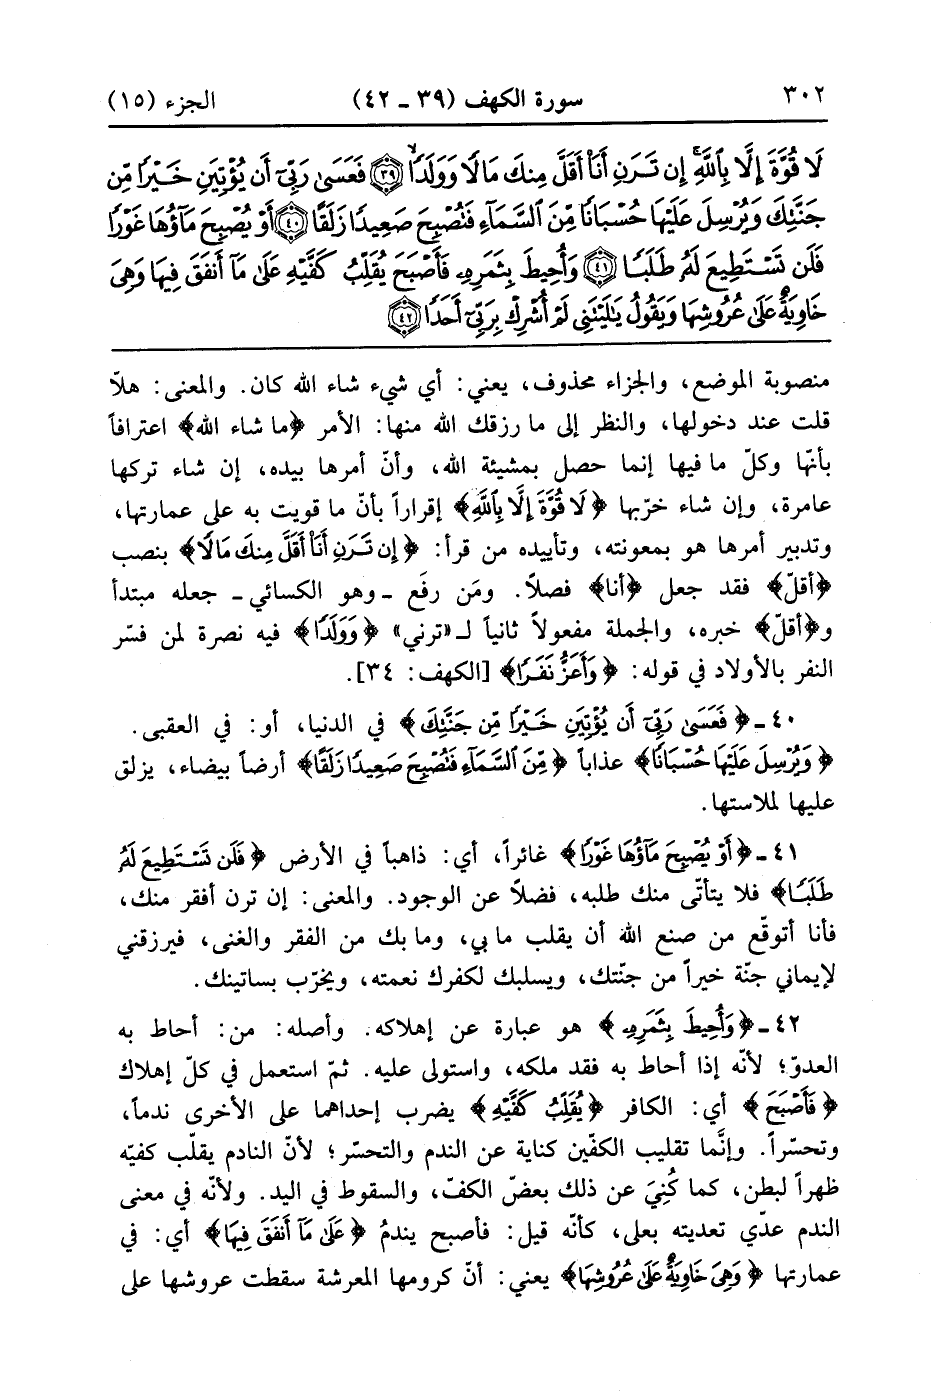 ٣٠٢ سورة الكهف (٣٩ ـ ٤٢) الجزء (١٥)
لَا قُوَّةَ إِلَّا بِاللَّهِ إِن تَرَنِ أَنَا۠ أَقَلَّ مِنكَ مَالًا وَوَلَدًا ﴿٣٩﴾ فَعَسَىٰ رَبِّىٓ أَن يُؤْتِيَنِ خَيْرًا مِّن
جَنَّتِكَ وَيُرْسِلَ عَلَيْهَا حُسْبَانًا مِّنَ السَّمَآءِ فَتُصْبِحَ صَعِيدًا زَلَقًا ﴿٤٠﴾ أَوْ يُصْبِحَ مَآؤُهَا غَوْرًا
فَلَن تَسْتَطِيعَ لَهُۥ طَلَبًا ﴿٤١﴾ وَأُحِيطَ بِثَمَرِهِۦ فَأَصْبَحَ يُقَلِّبُ كَفَّيْهِ عَلَىٰ مَآ أَنفَقَ فِيهَا وَهِىَ
خَاوِيَةٌ عَلَىٰ عُرُوشِهَا وَيَقُولُ يَٰلَيْتَنِى لَمْ أُشْرِكْ بِرَبِّىٓ أَحَدًا ﴿٤٢﴾
منصوبة الموضع، والجزاء محذوف، يعني: أي شيء شاء الله كان. والمعنى: هلّا
قلت عند دخولها، والنظر إلى ما رزقك الله منها: الأمر ﴿ما شاء الله﴾ اعترافاً
بأنّها وكلّ ما فيها إنما حصل بمشيئة الله، وأنّ أمرها بيده، إن شاء تركها
عامرة، وإن شاء خرّبها ﴿لَا قُوَّةَ إِلَّا بِاللَّهِ﴾ إقراراً بأنّ ما قويت به على عمارتها،
وتدبير أمرها هو بمعونته، وتأييده من قرأ: ﴿إِن تَرَنِ أَنَا۠ أَقَلَّ مِنكَ مَالًا﴾ بنصب
﴿أقلّ﴾ فقد جعل ﴿أنا﴾ فصلاً. ومَن رفَع ـ وهو الكسائي ـ جعله مبتدأ
و﴿أقلّ﴾ خبره، والجملة مفعولاً ثانياً لـ «ترني» ﴿وَوَلَدًا﴾ فيه نصرة لمن فسّر
النفر بالأولاد في قوله: ﴿وَأَعَزُّ نَفَرًا﴾ [الكهف: ٣٤].
٤٠ ـ ﴿فَعَسَىٰ رَبِّىٓ أَن يُؤْتِيَنِ خَيْرًا مِّن جَنَّتِكَ﴾ في الدنيا، أو: في العقبى.
﴿وَيُرْسِلَ عَلَيْهَا حُسْبَانًا﴾ عذاباً ﴿مِّنَ السَّمَآءِ فَتُصْبِحَ صَعِيدًا زَلَقًا﴾ أرضاً بيضاء، يزلق
عليها لملاستها.
٤١ ـ ﴿أَوْ يُصْبِحَ مَآؤُهَا غَوْرًا﴾ غائراً، أي: ذاهباً في الأرض ﴿فَلَن تَسْتَطِيعَ لَهُۥ
طَلَبًا﴾ فلا يتأتّى منك طلبه، فضلاً عن الوجود. والمعنى: إن ترن أفقر منك،
فأنا أتوقّع من صنع الله أن يقلب ما بي، وما بك من الفقر والغنى، فيرزقني
لإيماني جنّة خيراً من جنّتك، ويسلبك لكفرك نعمته، ويخرّب بساتينك.
٤٢ ـ ﴿وَأُحِيطَ بِثَمَرِهِۦ﴾ هو عبارة عن إهلاكه. وأصله: من: أحاط به
العدوّ؛ لأنّه إذا أحاط به فقد ملكه، واستولى عليه. ثمّ استعمل في كلّ إهلاك
﴿فَأَصْبَحَ﴾ أي: الكافر ﴿يُقَلِّبُ كَفَّيْهِ﴾ يضرب إحداهما على الأخرى ندماً،
وتحسّراً. وإنَّما تقليب الكفّين كناية عن الندم والتحسّر؛ لأنّ النادم يقلّب كفيّه
ظهراً لبطن، كما كُنِيَ عن ذلك بعضّ الكفّ، والسقوط في اليد. ولأنّه في معنى
الندم عدّي تعديته بعلى، كأنّه قيل: فأصبح يندمُ ﴿عَلَىٰ مَآ أَنفَقَ فِيهَا﴾ أي: في
عمارتها ﴿وَهِىَ خَاوِيَةٌ عَلَىٰ عُرُوشِهَا﴾ يعني: أنّ كرومها المعرشة سقطت عروشها على